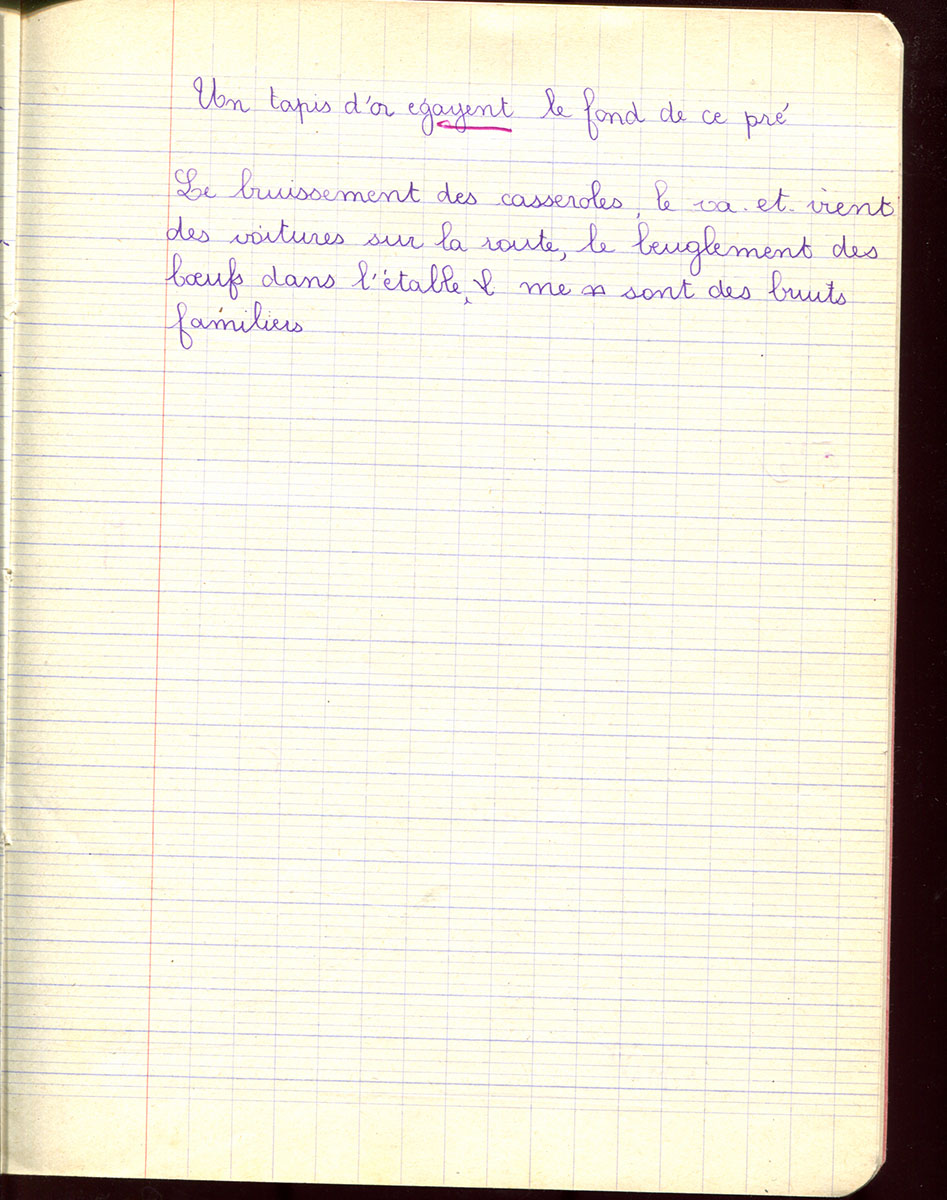 Un tapis d'or egayent le fond de ce pré
Le bruissement des casseroles, le va-et-vient
des voitures sur la route, le beuglement des
bœufs dans l'étable, me sont des bruits
familiers